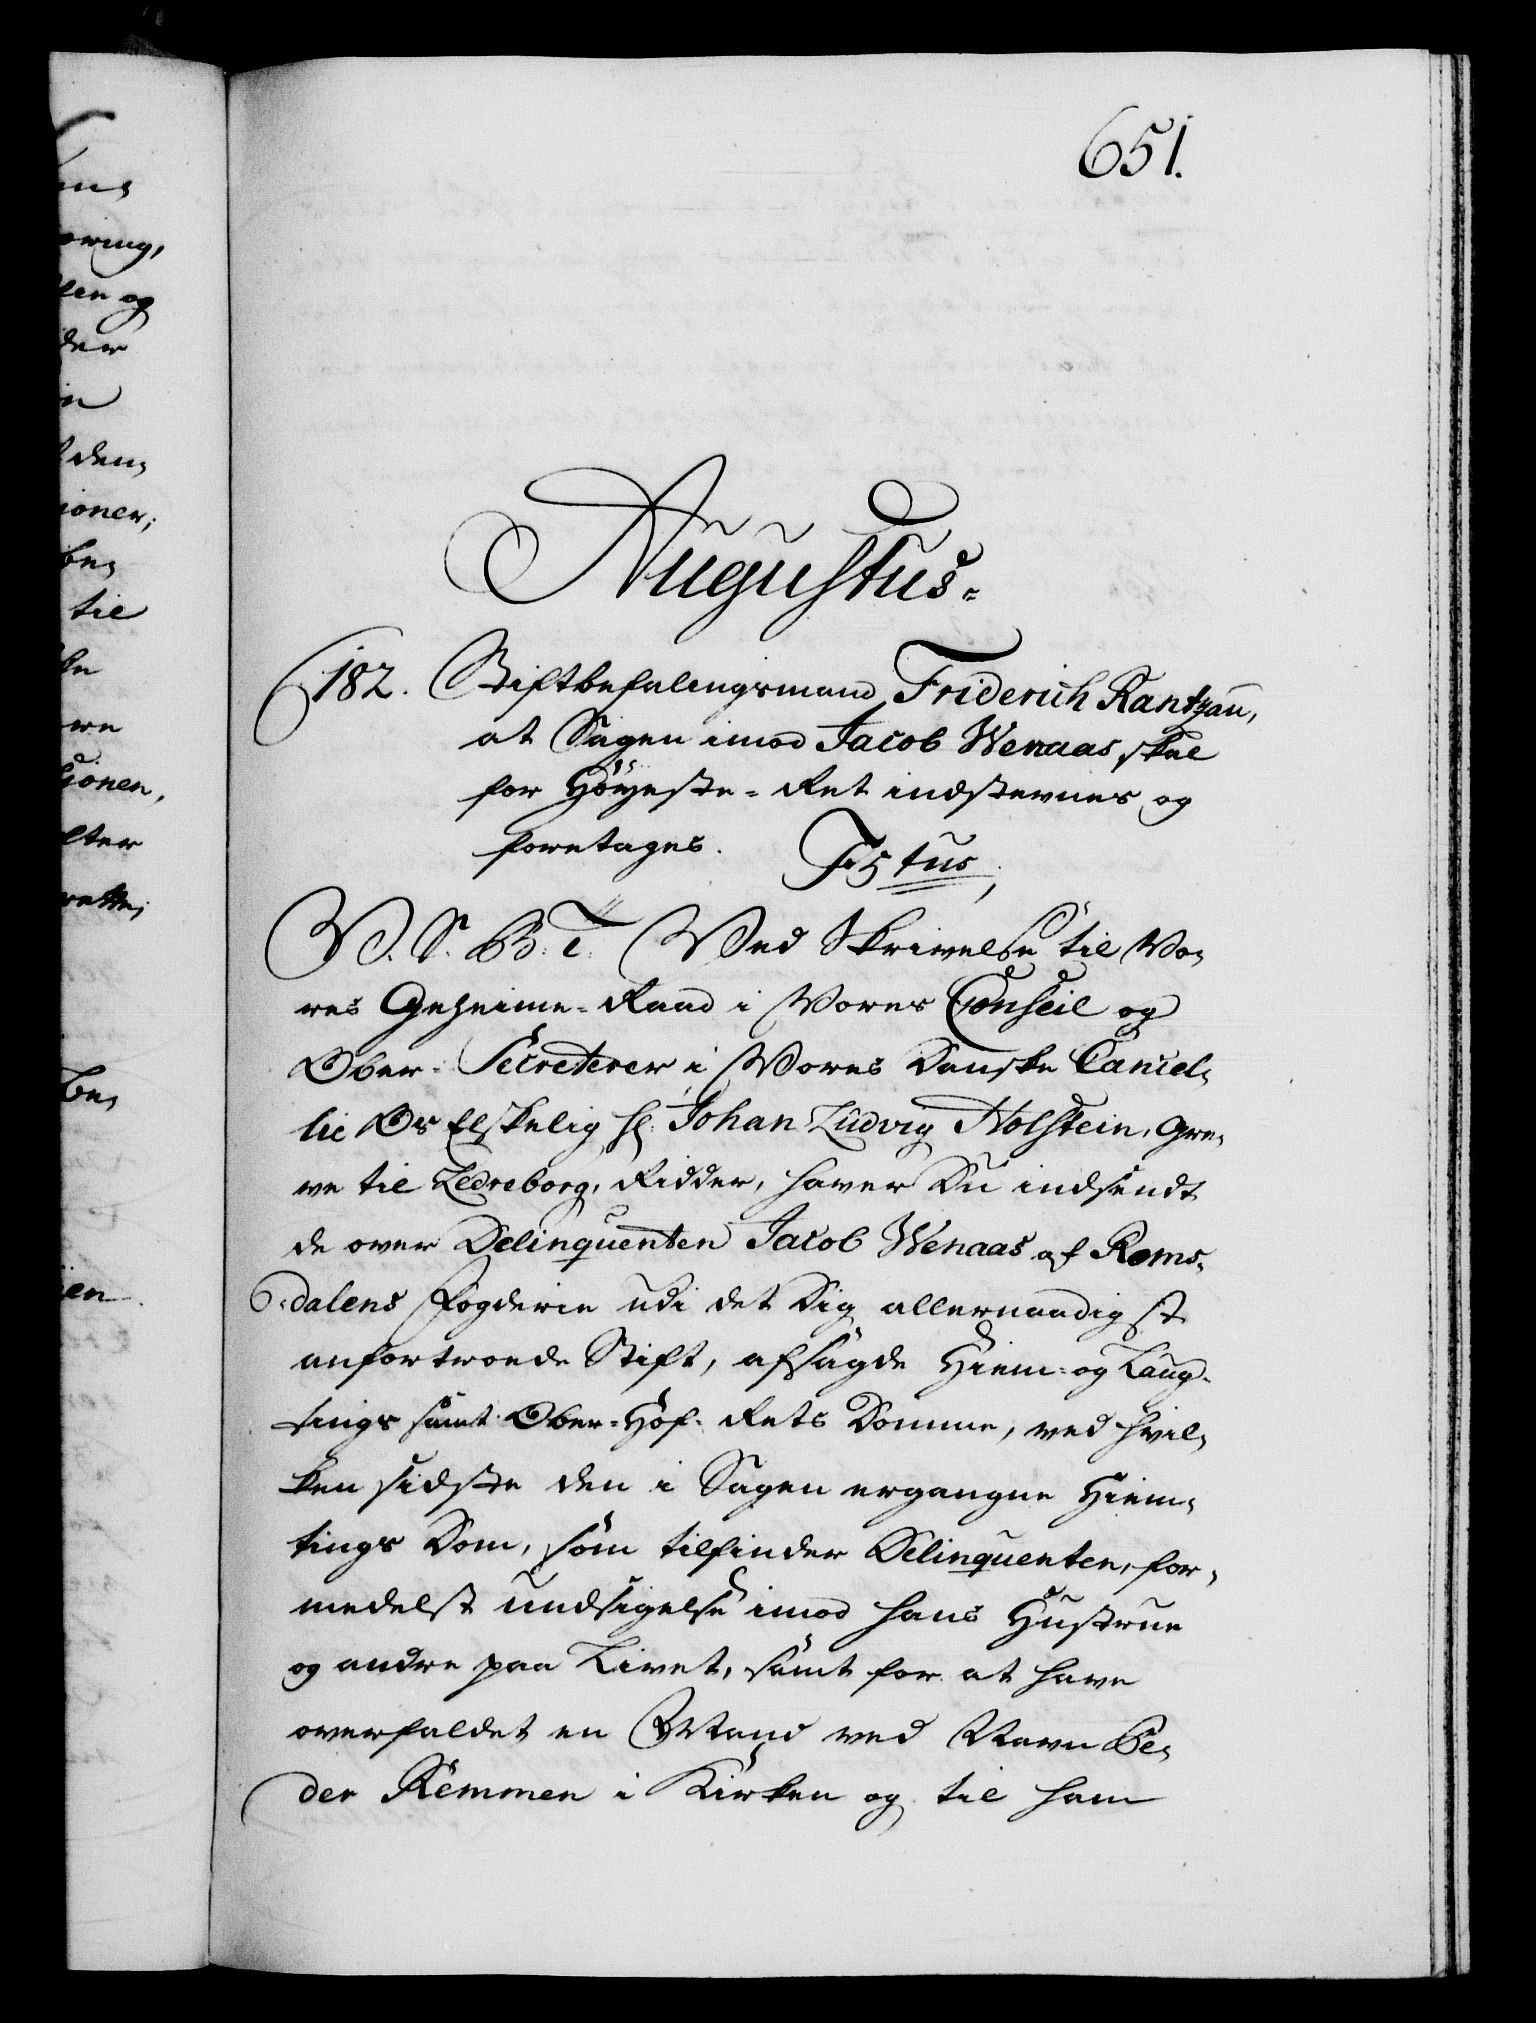 651.
Augustus.
182. Stiftbefalingsmand Friderich Rantzau,
at Sagen imod Jacob Wenaas skal
for Höyeste-Ret indstevnes og
foretages.
F5tus,
V. S. B: T. Ved Skrivelse til Vo,
res Geheime-Raad i Vores Conseil og
Ober-Secreterer i Vores Danske Cancel,
lie Os Elskelig Hr: Johan Ludvig Holstein, Gre,
ve til Ledreborg, Ridder, haver Du indsendt
de over Delinquenten Jacob Wenaas af Roms,
dalens Fogderie udi det Dig allernaadigst
anfortroede Stift, afsagde Hiem- og Laug-
tings samt Ober-Hof-Rets Domme, ved hvil,
ken sidste den i Sagen ergangne Hiem,
tings Dom, som tilfinder Delinquenten, for,
medelst undsigelse imod hans Hustrue
og andre paa Livet, samt for at have
overfaldet en Mand ved Navn Pe,
der Remmen i Kirken og til ham
ring,
len og
der
den,
ioner,
be,
til
ionen,
lter
rette,
be,
ien